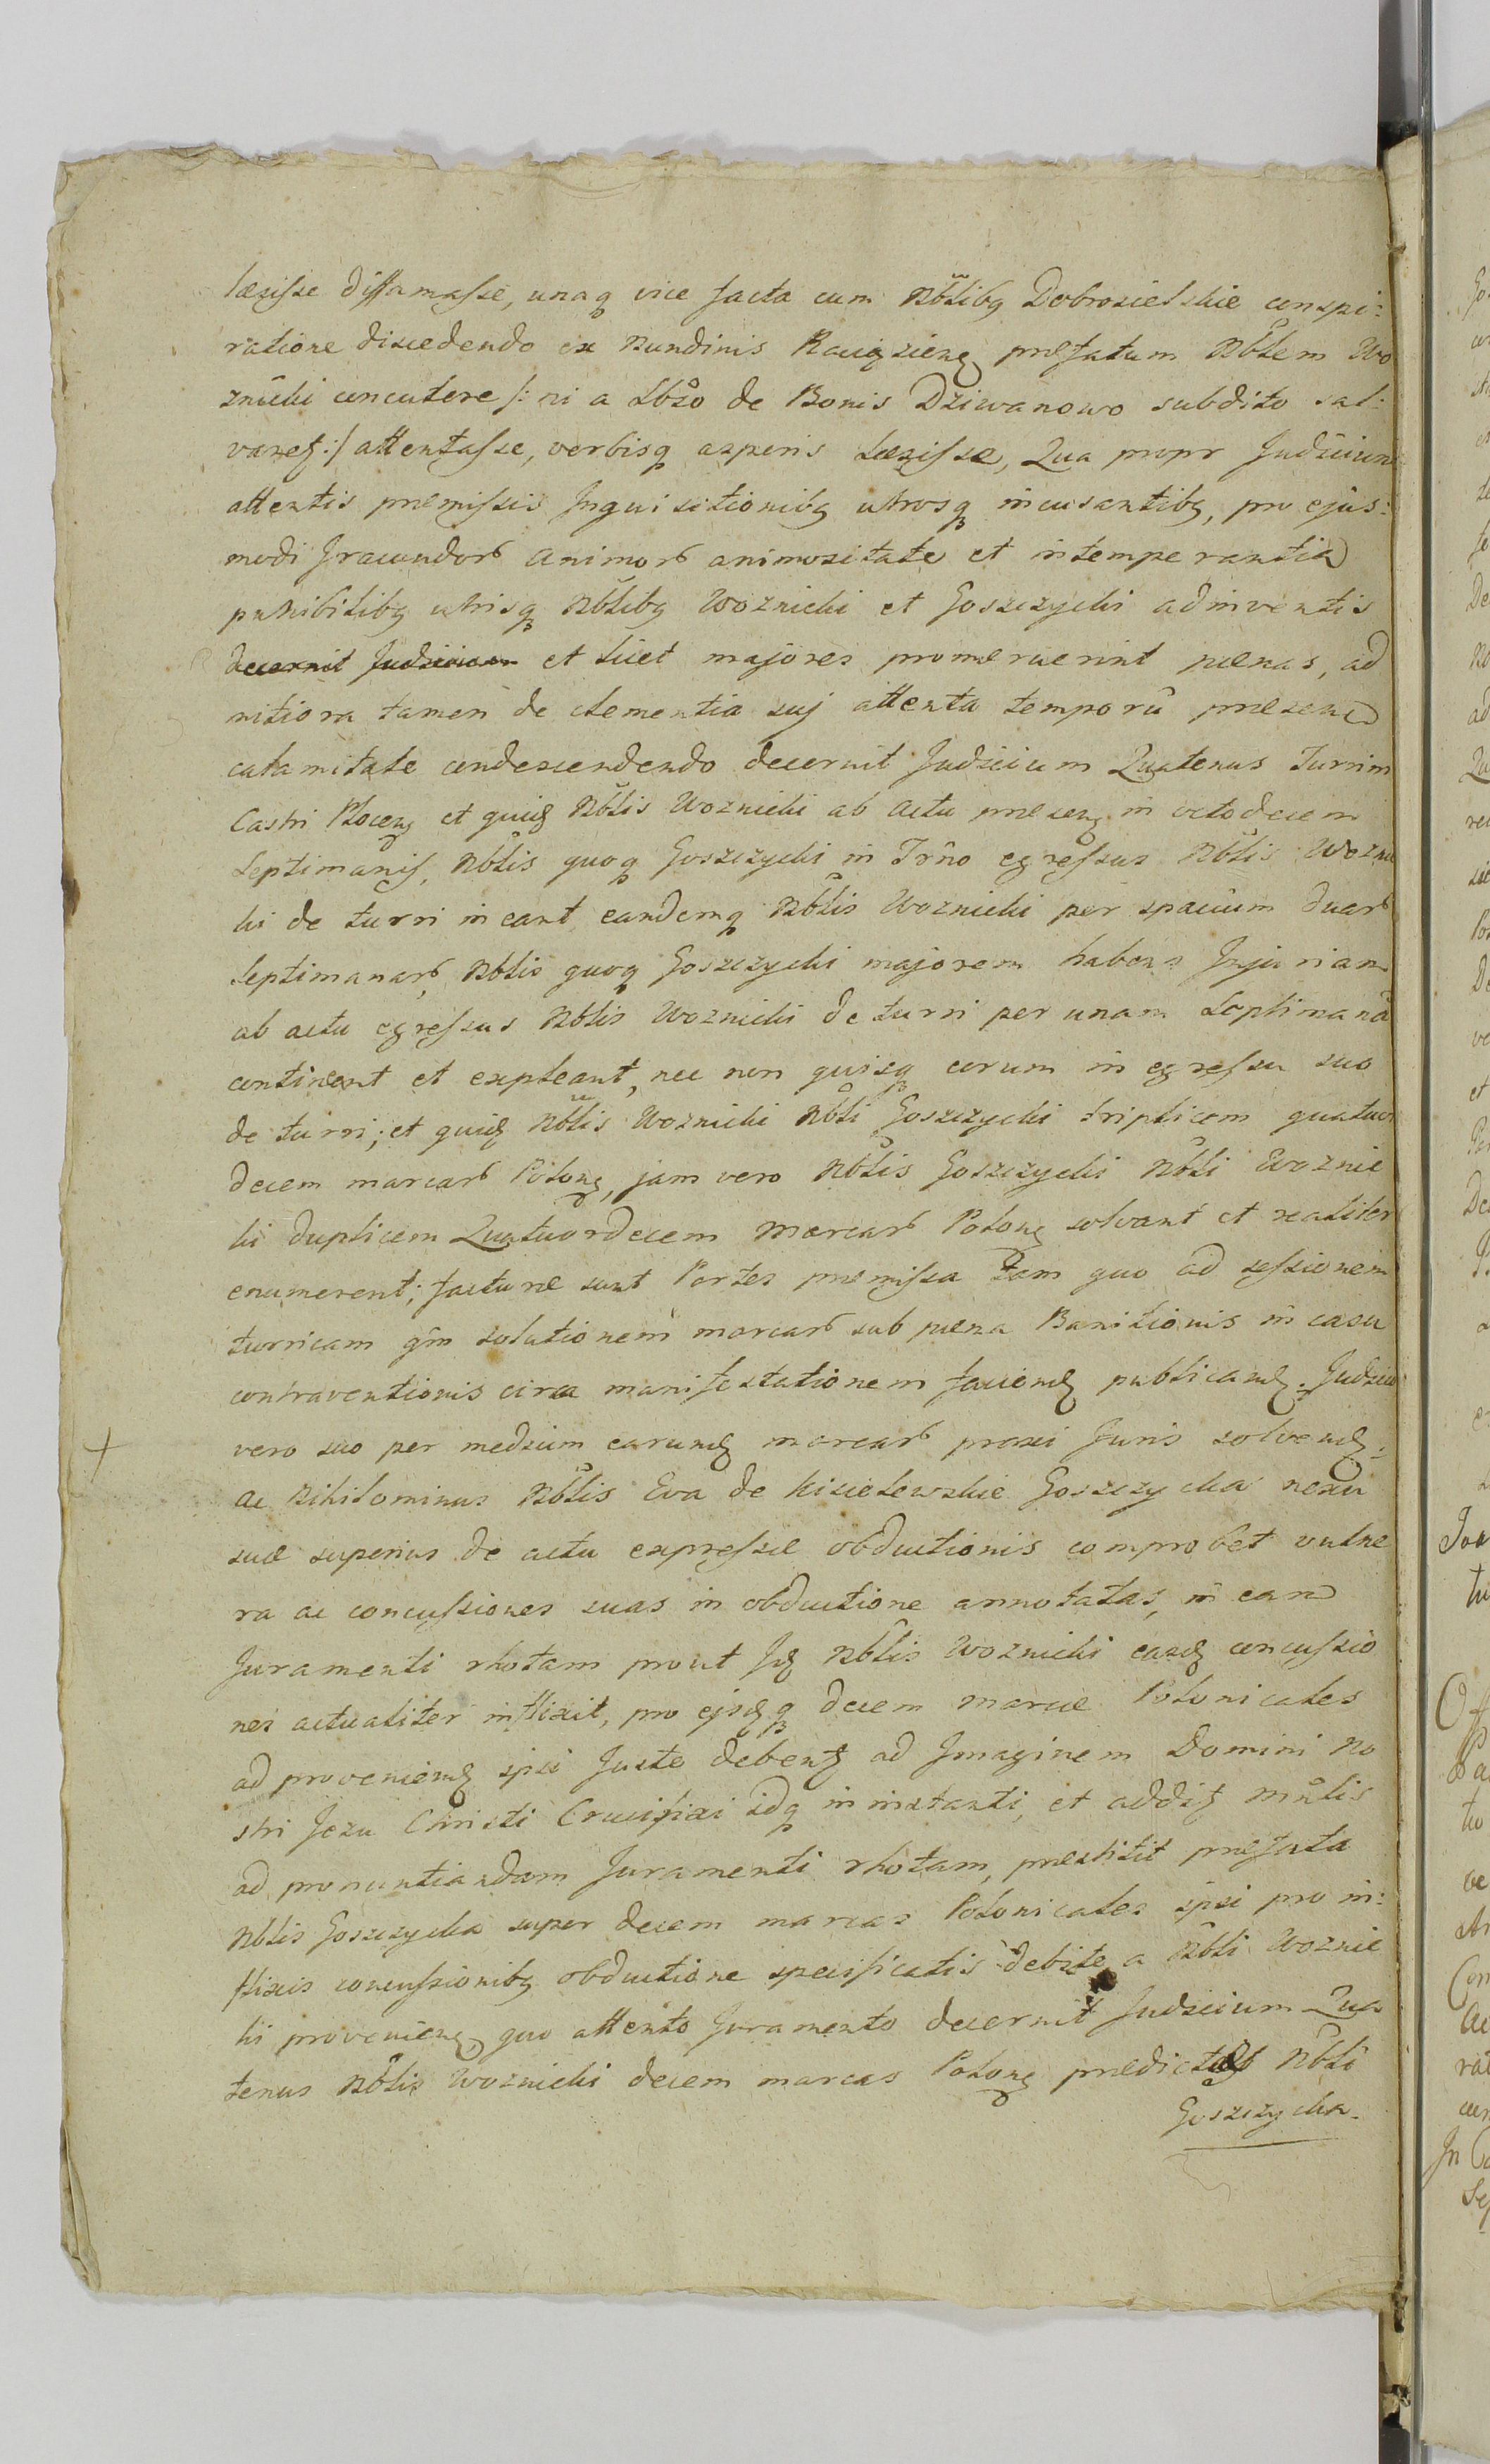 læsisse diffamasse, unaq vice facta cum Nbłibq Dobrosielskie conspi:
ratione discedendo ex Nundinis Raciązień præfatum Nbłem Wo
znicki concutere /: ni a Lbso de Bonis Dziwanowo subdito sal:
varet :/ attentasse, verbisq asperis læsisse, Qua propr Judicium
attentis præmissis Inquisitionibq utrosq incusantibq, pro ejus:
modi Iracundor animor animositate et intemperantia
punibilibq utrisq Nbłibq Woznicki et Goszczycki adinventis
decernit Judicium et licet majores promeruerint pænas, ad
mitiora tamen de clementia sui attenta temporũ præsen
calamitate condescendendo decernit Judicium Quatenus Turrim
Castri Płocen et quid Nbłis Woznicki ab actu præsen in octodecem
Septimanis, Nbłis quoq Goszczycki in Trno egressus Nbłis Wozni
ki de turri ineant eandemq Nbłis Woznicki per spacium duar
Septimanar, Nbłis quoq Goszczycki majorem habens Injuriam
ab actu egressus Nbłis Woznicki de turri per unam Septimanã
contineant et expleant, nec non quisq eorum in egressu suo
de turri; et quid Nbłis Woznicki Nbłi Goszczycki triplicem quatuor
decem marcar Polon, jam vero Nbłis Goszczycki Nbłi Woznic
ki duplicem Quatuordecem marcar Polon solvant et realiter
enumerent; facturæ sunt Partes præmissa tam quo ad sessionem
turricam qm solutionem marcar sub pæna Banitionis in casu
contraventionis circa manifestationem faciend publicand. Judicio
vero suo per medium earund marcar praxi Juris solvend.
ac Nihilominus Nbłis Eva de Kisielewskie Goszczycka nexu
suæ superius de actu expressæ obductionis comprobet vulne
ra ac concussiones suas in obductione annotatas, in ean
Juramenti rhotam prout Id Nbłis Woznicki easd concussio
nes actualiter inflixit, pro ejsdq decem marcæ Polonicales
ad proveniend ipsi Juste debent ad Imaginem Domini No
stri Jezu Christi Crucifixi idq in instanti, et addit Mnłis
ad pronuntiandam Juramenti rhotam, præstitit præfata
Nbłis Goszczycka super decem marcas Polonicales ipsi pro in:
flixis concussionibq obductione specificatis debite a Nbłi Woznic
ki provenien, quo attento Juramento decernit Judicium Qua
tenus Nbłis Woznicki decem marcas Polon prædictas Nbłi
Goszczycka.